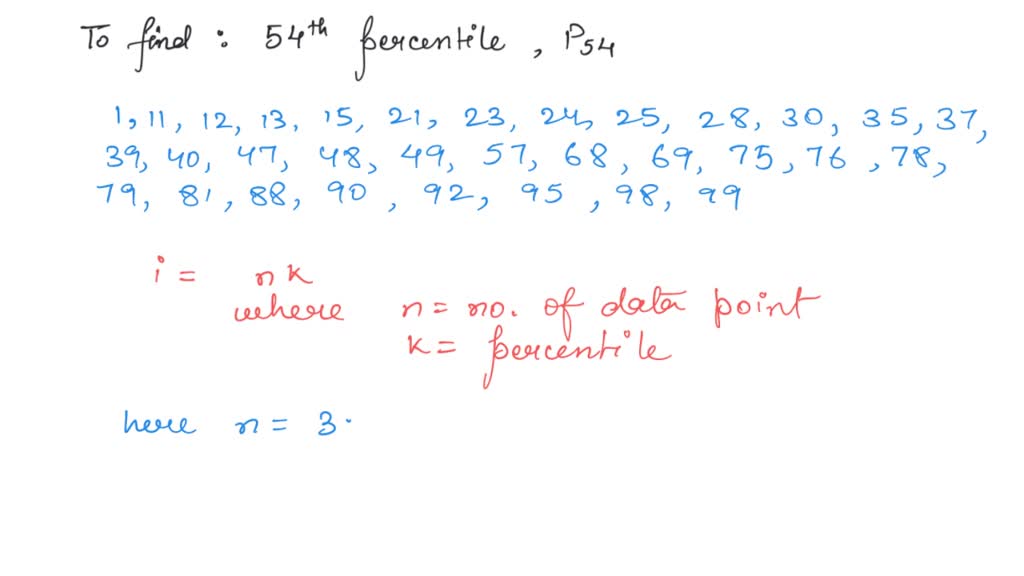 To find : 54th percentile , P54
1, 11, 12, 13, 15, 21, 23, 24, 25, 28, 30, 35, 37,
39, 40, 47, 48, 49, 57, 68, 69, 75, 76 , 78,
79, 81, 88, 90 , 92, 95 , 98, 99
i = nk
where n = no. of data point
k = percentile
here n = 3